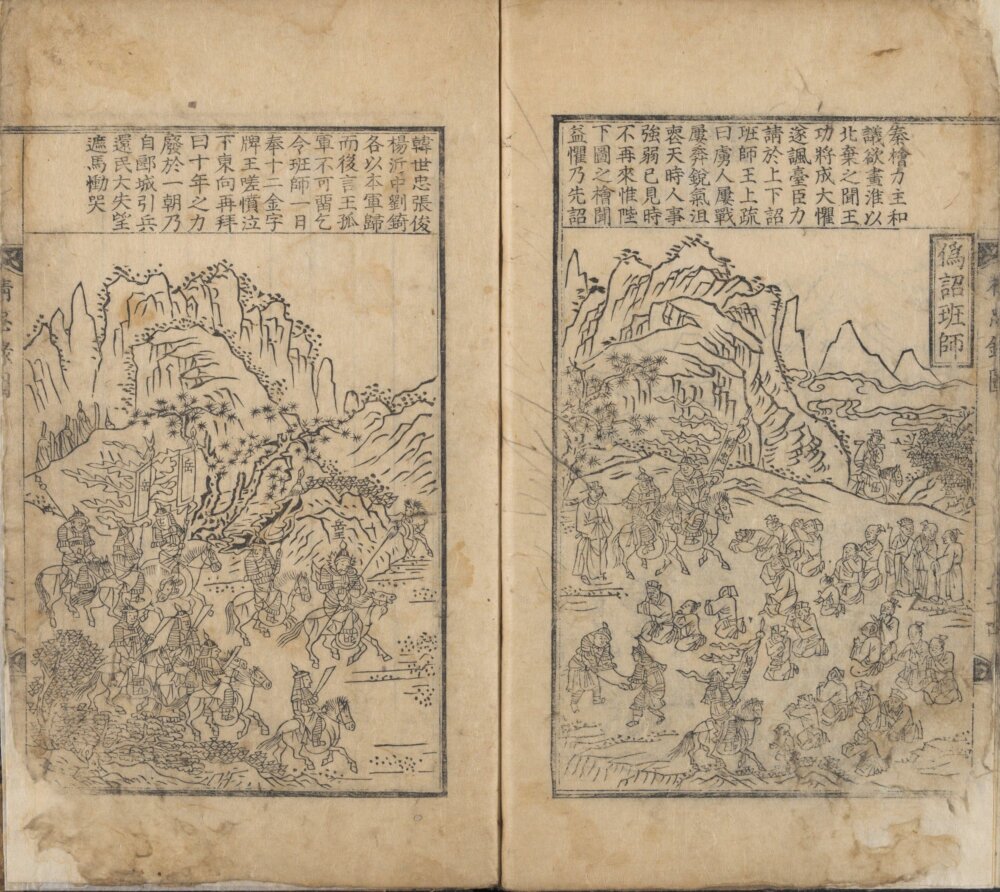 偽詔班師
秦檜力主和
議欲畫淮以
北棄之聞王
功將成大懼
遂諷臺臣力
請於上下詔
班師王上疏
曰虜人屢戰
屢奔銳氣沮
喪天時人事
強弱已見時
不再來惟陛
下圖之檜聞
益懼乃先詔
韓世忠張俊
楊沂中劉錡
各以本軍歸
而後言王孤
軍不可留乞
令班師一日
奉十二金字
牌王嗟憤泣
下東向再拜
曰十年之力
廢於一朝乃
自郾城引兵
還民大失望
遮馬慟哭
岳
岳
岳王